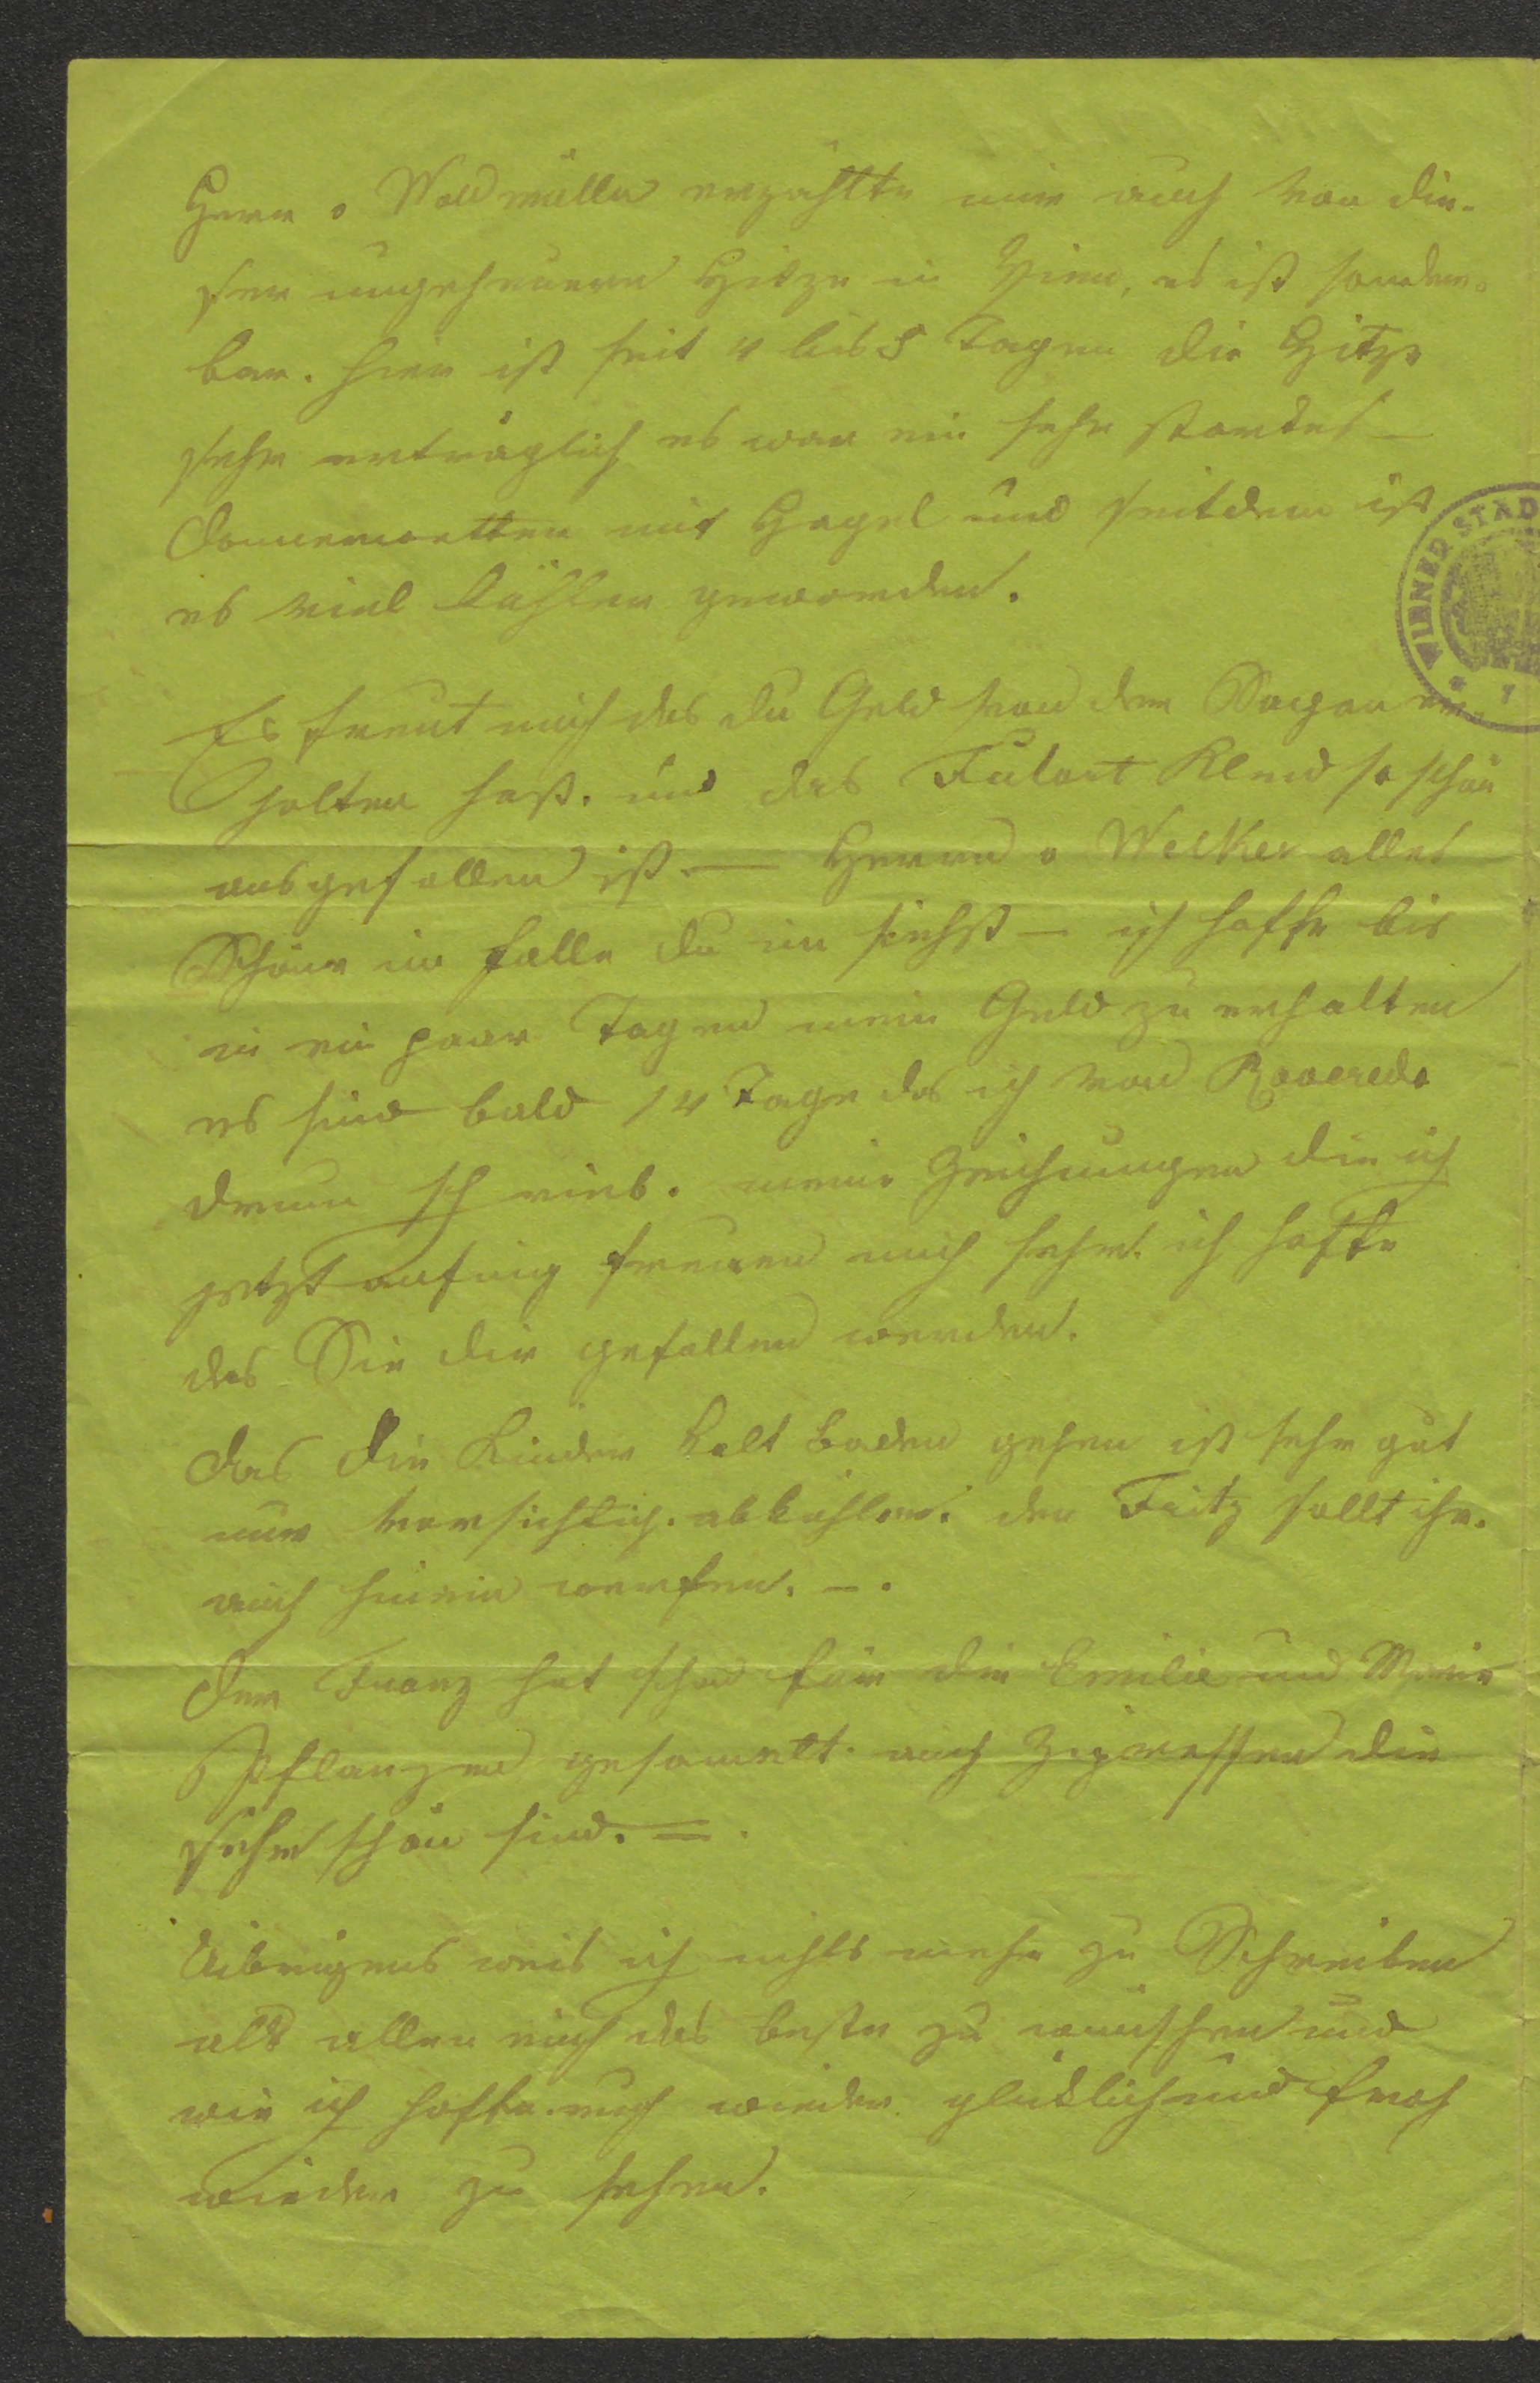 Herr v Waldmüller erzählte mir auch von die-
ser ungeheueren Hitze in Wien, es ist sonder-
bar. hier ist seit 4 bis 5 Tagen die Hitze
sehr erträglich es war ein sehr starkes
Donnerwetter mit Hagel und seitdem ist
es viel kühler geworden.
Es freut mich das du Geld von der er-
halten hast. und das Fulart Kleid so schön
ausgefallen ist — Herrn v Welker alles
Schöne im falle du in siehst — ich hoffe bis
in ein paar Tagen mein Geld zu erhalten
es sind bald 14 Tage das ich von Roveredo
drum schrieb. meine Zeichnungen die ich
jetzt anfing freuen mich sehr. ich hoffe
das Sie dir gefallen werden.
das die Kinder kalt Baden gehen ist sehr gut
nur vorsichtig. abkühlen. den Fritz sollt ihr.
auch hinein werfen. –.
der Franz hat schon für die Emilie und Marie
Pflanzen gesamelt. auch Zipressen die
sehr schön sind. =.
Uibrigens weis ich nichts mehr zu Schreiben
als allen euch das beste zu wünschen und
wie ich hoffe. euch wieder glüklich und froh
wieder zu sehen.
WIENER STAD